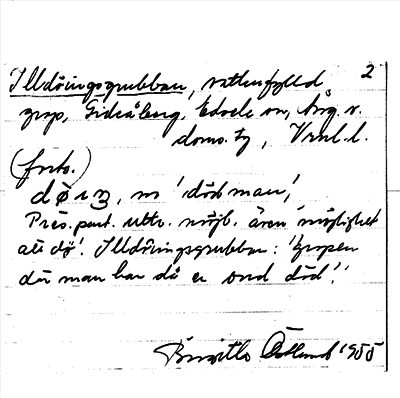 2
Illdöingsgrubban, vattenfylld
grop, Gideåberg, Edsele sn, Ång. v.
doms. tg, Vrnl. l.
(forts.)
døıŋ, m 'död man',
Pres. part. uttr. möjl. även 'möjlighet
att dö'. Illdöingsgrubban: 'gropen
där man har då e ond död'.
Birgitta Östlund 1955